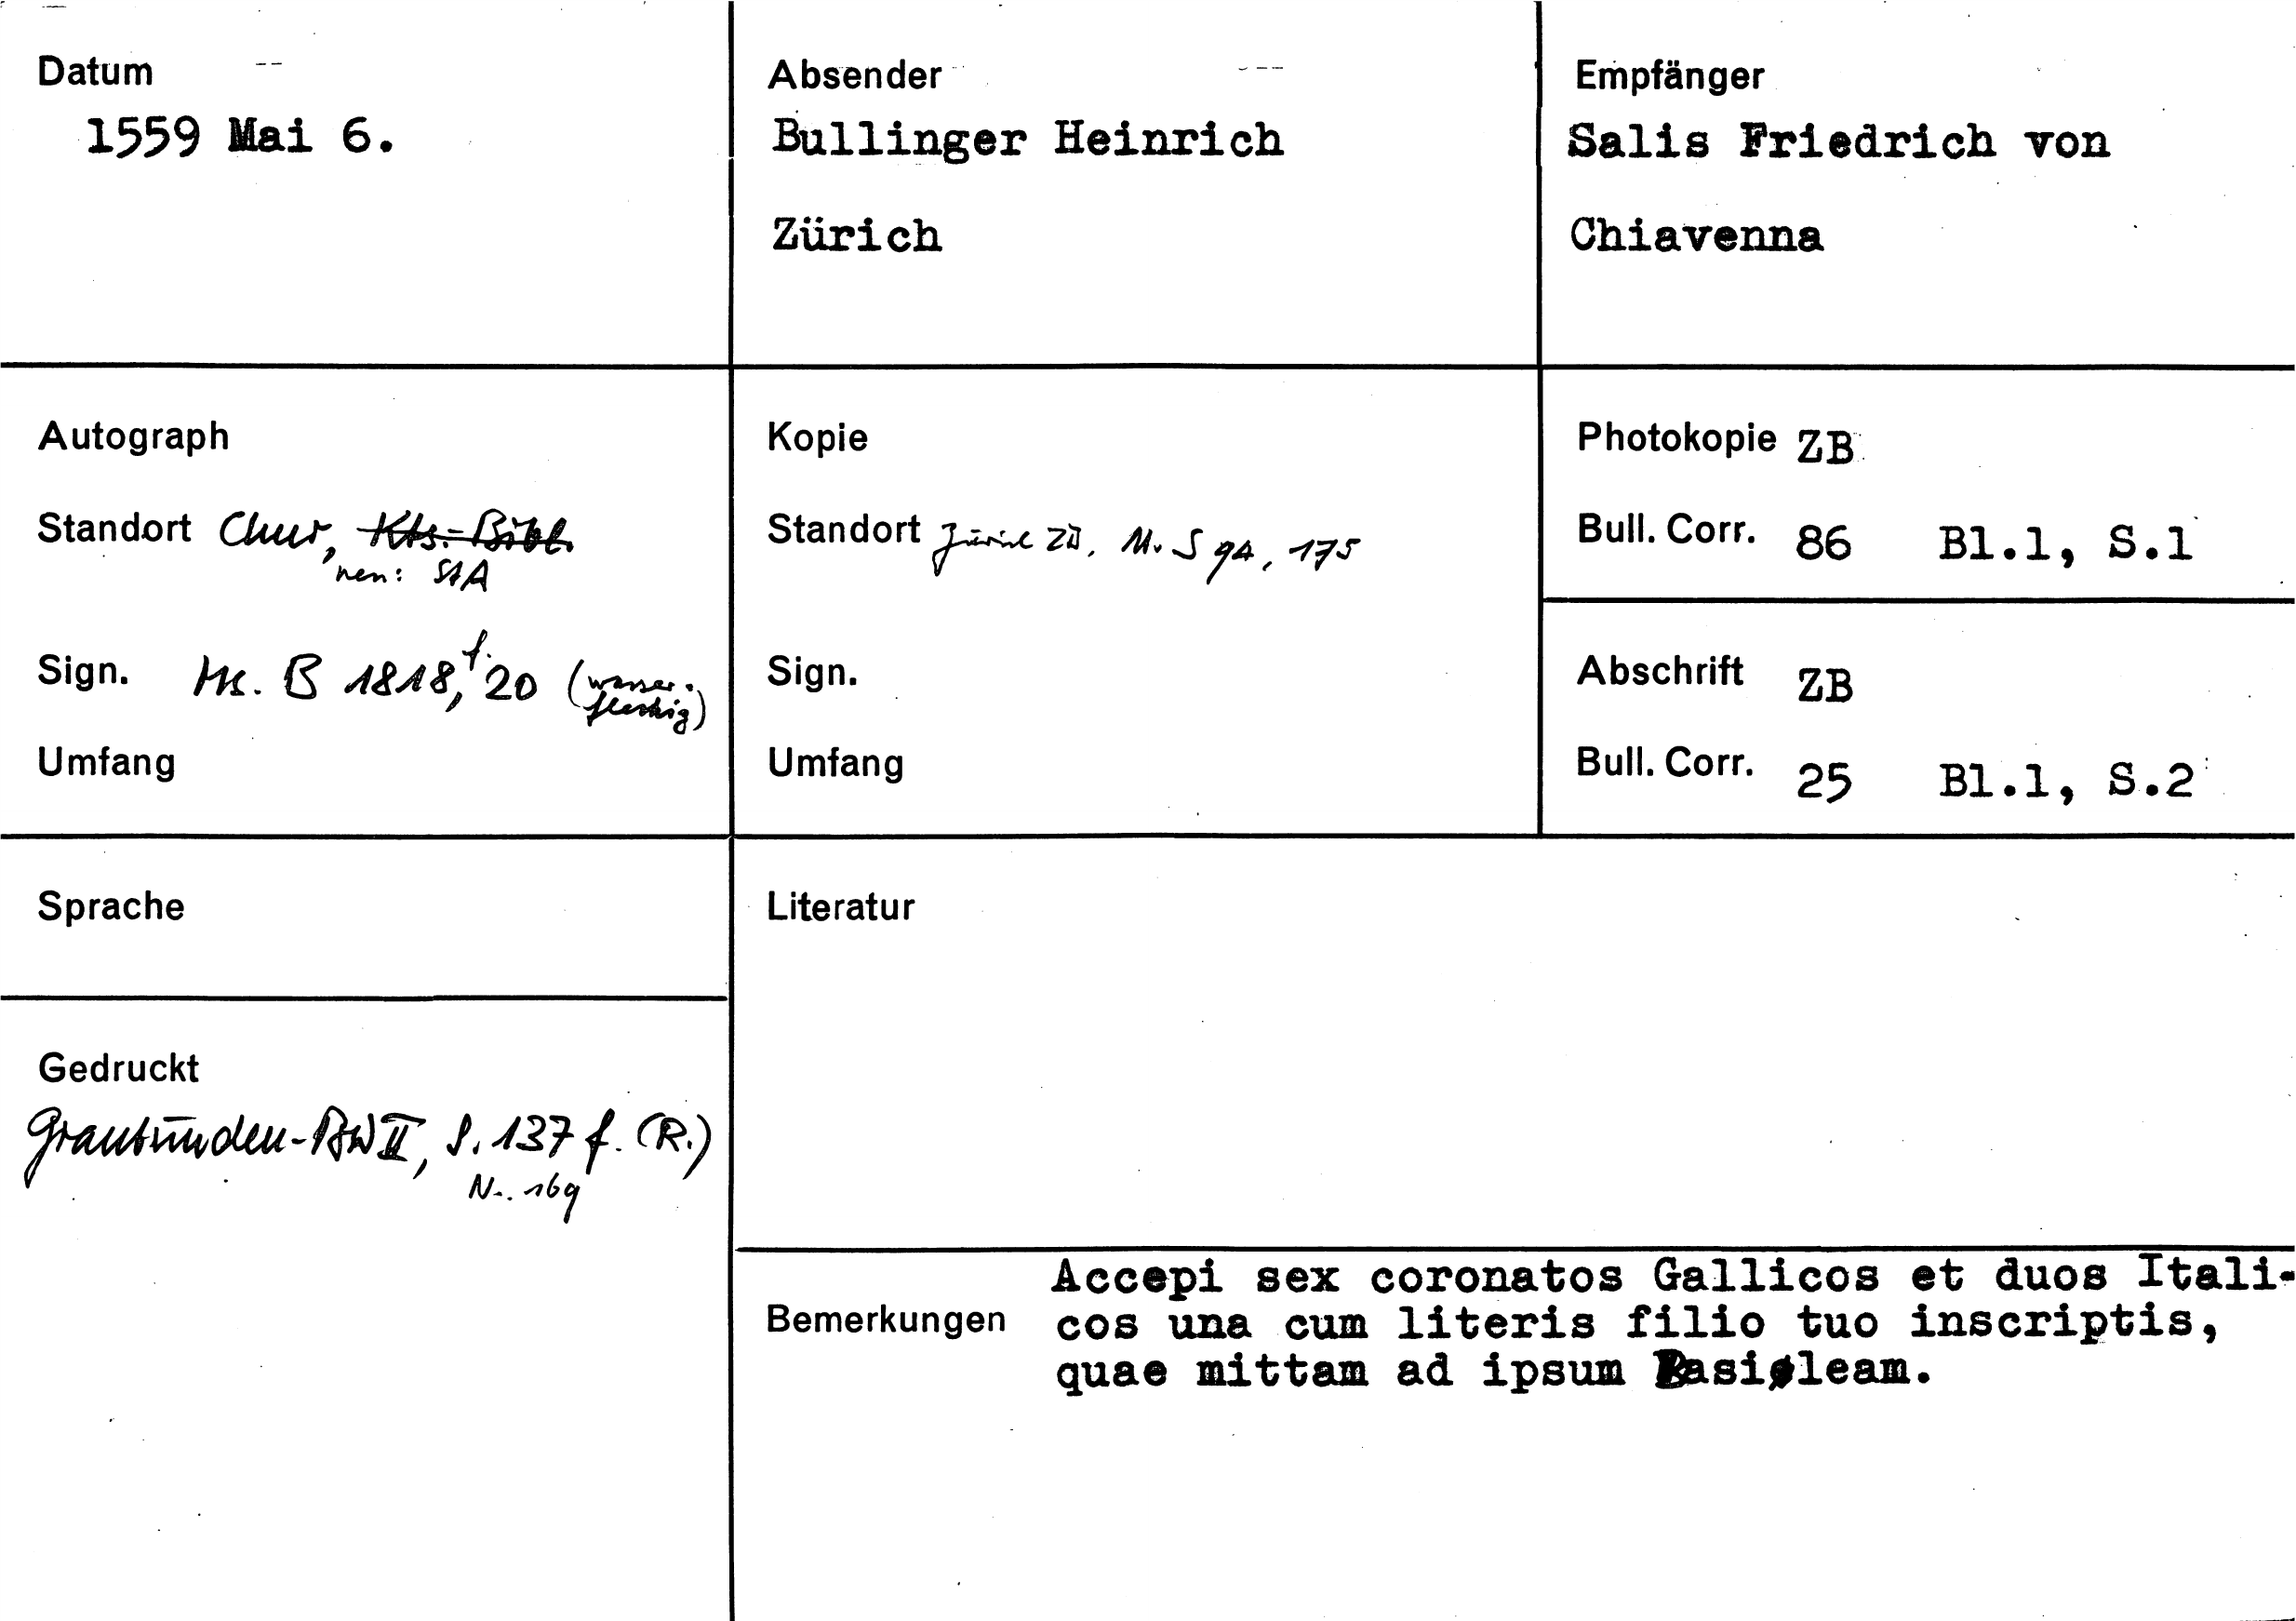 Datum
1559 Mai 6.
Absender
Bullinger Heinrich
Zürich
Empfänger
Salis Friedrich von
Chiavenna
Autograph
Standort Chur, Kts.-Bibl.
neu: StA
Sign. Ms. B 1818, f. 20 (wasser-
fleckig)
Umfang
Kopie
Standort Zürich ZB, Ms. S 94, 175
Sign.
Umfang
Photokopie ZB
Bull. Corr. 86 Bl.1, S.1
Abschrift ZB
Bull. Corr. 25 Bl.1, S.2
Sprache
Gedruckt
Graubünden-BW II, S. 137 f. (R.)
Nr. 169
Literatur
Bemerkungen
Accepi sex coronatos Gallicos et duos Itali-
cos una cum literis filio tuo inscriptis,
quae mittam ad ipsum Basileam.